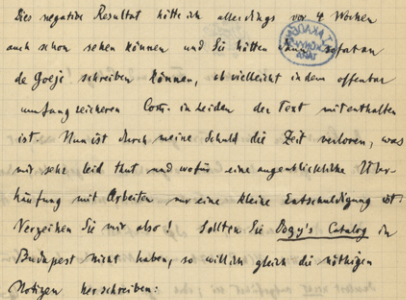 Dies negative Resultat hätte ich allerdings vor 4 Wochen
auch schon sehen können und Sie hätten dann sofort an
de Goeje schreiben können, ob vielleicht in dem offenbar
umfangreicheren Com. in Leiden der Text mitenthalten
ist. Nun ist durch meine Schuld die Zeit verloren, was
mir sehr leid thut und wofür eine augenblickliche Über-
häufung mit Arbeiten nur eine kleine Entschuldigung ist.
Verzeihen Sie mir also! Sollten Sie Dozy's Catalog in
Budapest nicht haben, so will ich gleich die nöthigen
Notizen herschreiben: